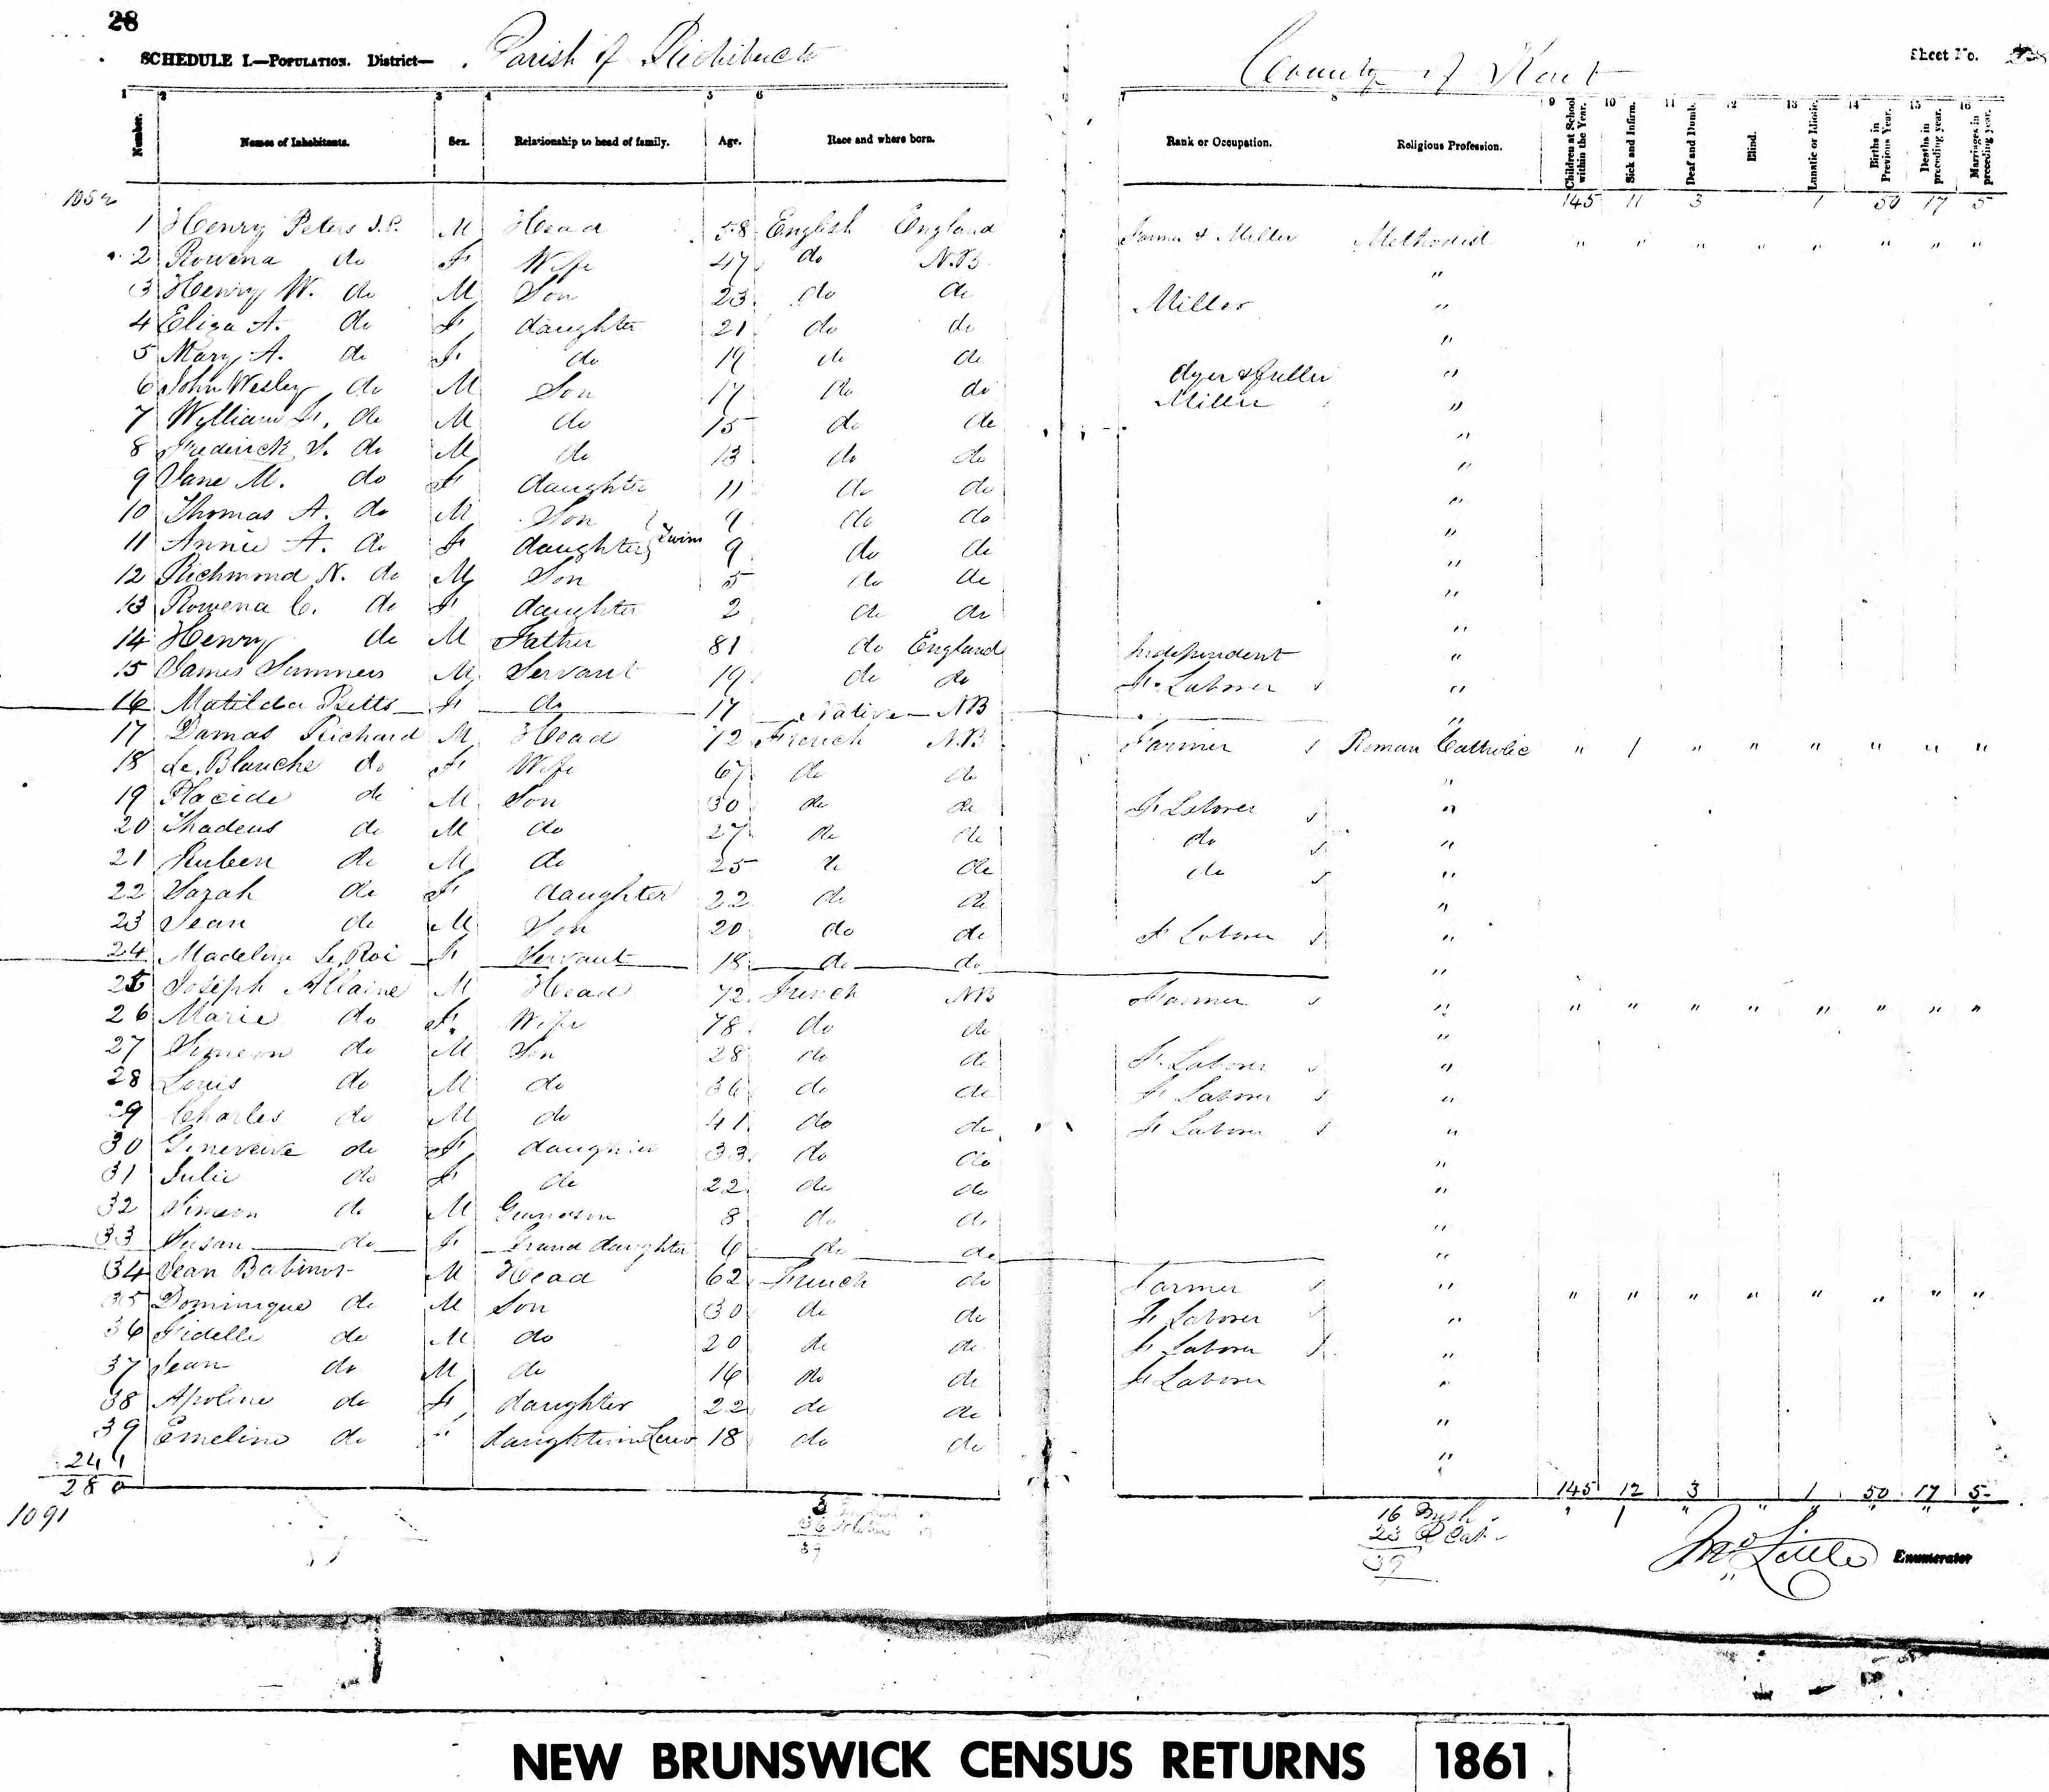 28
SCHEDULE I.—POPULATION. District— Parish of Richibucto County of Kent Sheet No. 28
1 2 3 4 5 6 7 8 9 10 11 12 13 14 15 16
Number. Names of Inhabitants. Sex. Relationship to head of family. Age. Race and where born. Rank or Occupation. Religious Profession. Children at School within the Year. Sick and Infirm. Deaf and Dumb. Blind. Lunatic or Idiotic. Births in Previous Year. Deaths in preceding year. Marriages in preceding year.
1052 145 11 3 1 50 17 5
1 Henry Peters J.P. M Head 58 English England Farmer & Miller Methodist " " " " " " " "
2 Rowena do F Wife 47 do N.B. "
3 Henry W. do M Son 23 do do Miller "
4 Eliza A. do F daughter 21 do do "
5 Mary A. do F do 19 do do "
6 John Wesley do M Son 17 do do dyer & fuller "
7 William do M do 15 do do Miller "
8 Frederick S. do M do 13 do do "
9 Jane M. do F daughter 11 do do "
10 Thomas A. do M Son 9 do do "
11 Annie A. do F daughter } Twins 9 do do "
12 Richmond N. do M Son 5 do do "
13 Rowena C. do F daughter 2 do do "
14 Henry do M Father 81 do England Independent "
15 James Summers M Servant 19 do do F. Laborer "
16 Matilda Betts F do 17 Native NB "
17 Damas Richard M Head 72 French N.B. Farmer Roman Catholic " 1 " " " " " "
18 Le. Blanche do F Wife 67 do do "
19 Placide do M Son 30 do do F Laborer "
20 Thadeus do M do 27 do do do "
21 Ruben do M do 25 do do do "
22 Sarah do F daughter 22 do do "
23 Jean do M Son 20 do do F Laborer "
24 Madeline Le Roi F Servant 18 do do "
25 Joseph Allaine M Head 72 French NB Farmer " " " " " " " " "
26 Marie do F. Wife 78 do do "
27 Simeon do M Son 28 do do F. Laborer "
28 Louis do M do 36 do do F Laborer "
29 Charles do M do 41 do do F Laborer "
30 Geneveive do F daughter 33 do do "
31 Julie do F do 22 do do "
32 Simeon do M Grandson 8 do do "
33 Susan do F Grand daughter 6 do do "
34 Jean Babinot M Head 62 French do Farmer " " " " " " " " "
35 Dominique do M Son 30 do do F Laborer "
36 Fidelle do M do 20 do do F Laborer "
37 Jean do M do 16 do do F Laborer "
38 Apoline do F daughter 22 do do "
39 Emeline do F daughter in Law 18 do do "
241
280 145 12 3 " 1 50 17 5
1091 3 16 " 1 " " " " " "
36 Natives 23 R Cat
39 39
Jno Little Enumerator
NEW BRUNSWICK CENSUS RETURNS 1861